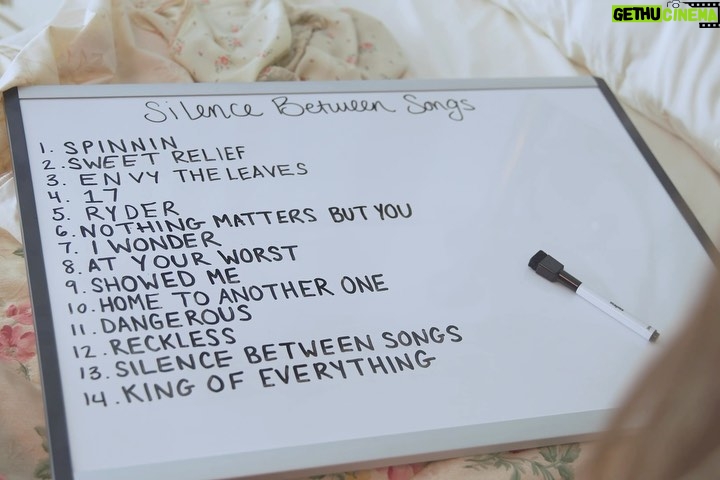 GETHU CINEMA
Silence Between Songs
1. SPINNIN
2. SWEET RELIEF
3. ENVY THE LEAVES
4. 17
5. RYDER
6. NOTHING MATTERS BUT YOU
7. I WONDER
8. AT YOUR WORST
9. SHOWED ME
10. HOME TO ANOTHER ONE
11. DANGEROUS
12. RECKLESS
13. SILENCE BETWEEN SONGS
14. KING OF EVERYTHING